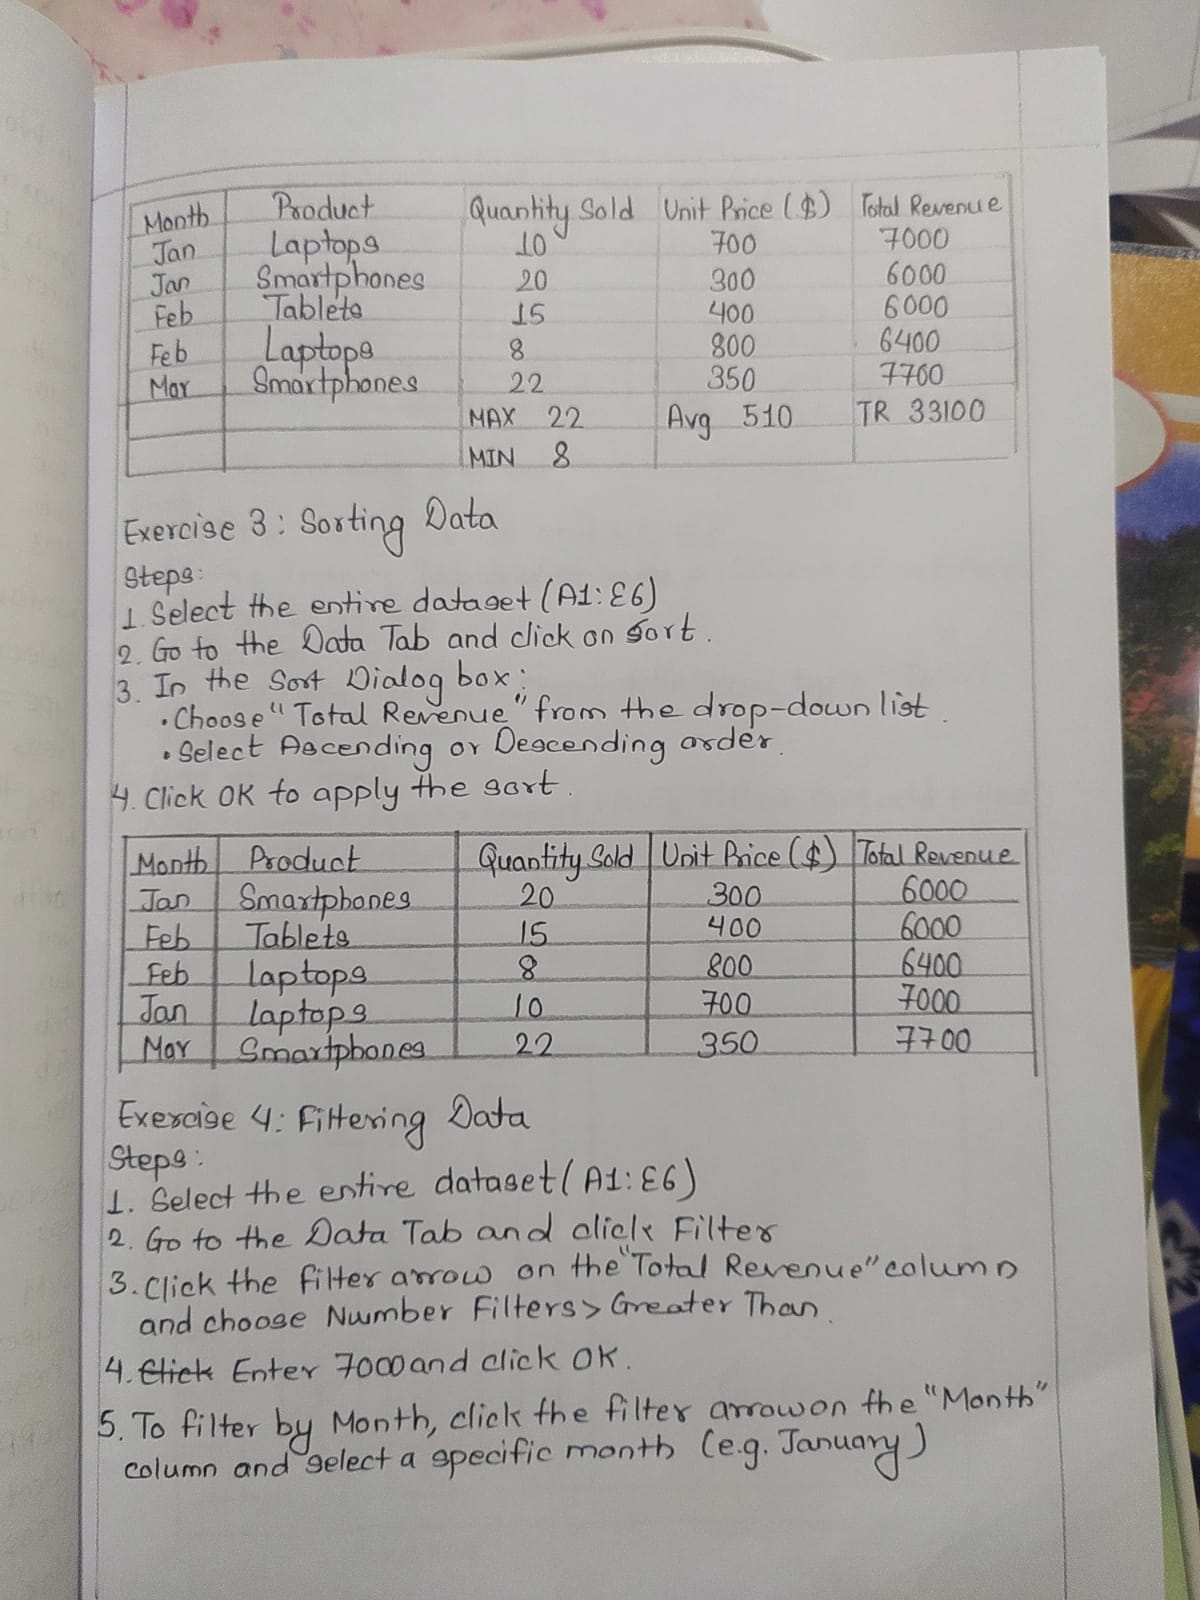 Month Product Quantity Sold Unit Price ($) Total Revenue
Jan Laptops 10 700 7000
Jan Smartphones 20 300 6000
Feb Tablets 15 400 6000
Feb Laptops 8 800 6400
Mar Smartphones 22 350 7700
MAX 22 Avg 510 TR 33100
MIN 8
Exercise 3: Sorting Data
Steps:
1. Select the entire dataset (A1:E6)
2. Go to the Data Tab and click on Sort.
3. In the Sort Dialog box:
• Choose "Total Revenue" from the drop-down list.
• Select Ascending or Descending order.
4. Click OK to apply the sort.
Month Product Quantity Sold Unit Price ($) Total Revenue
Jan Smartphones 20 300 6000
Feb Tablets 15 400 6000
Feb laptops 8 800 6400
Jan laptops 10 700 7000
Mar Smartphones 22 350 7700
Exercise 4: Filtering Data
Steps:
1. Select the entire dataset (A1:E6)
2. Go to the Data Tab and click Filter
3. Click the filter arrow on the "Total Revenue" column
and choose Number Filters > Greater Than.
4. Click Enter 7000 and click OK.
5. To filter by Month, click the filter arrow on the "Month"
column and select a specific month (e.g. January)